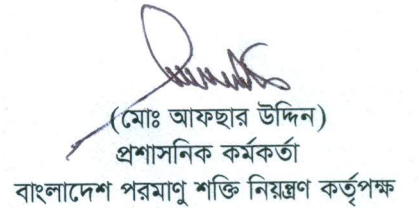 (মোঃ আফছার উদ্দিন)
প্রশাসনিক কর্মকর্তা
বাংলাদেশ পরমাণু শক্তি নিয়ন্ত্রণ কর্তৃপক্ষ